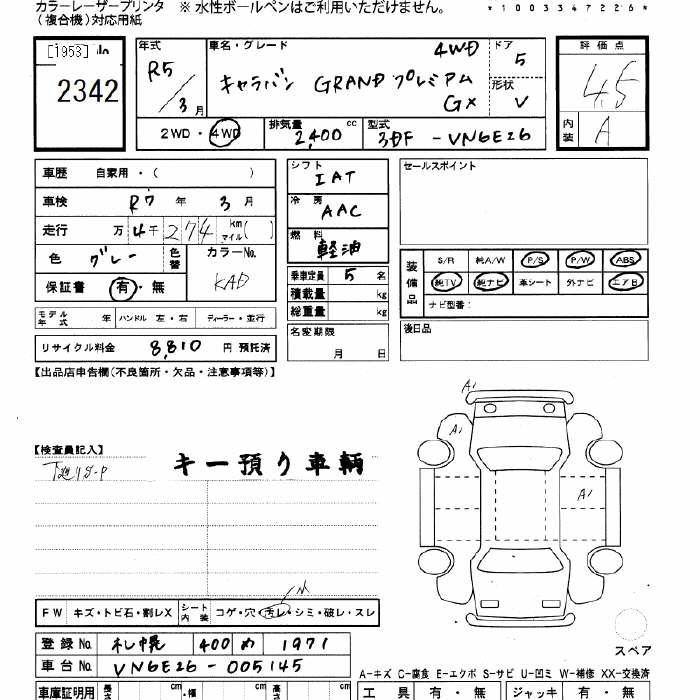 カラーレーザープリンタ ※ 水性ボールペンはご利用いただけません。
(複合機)対応用紙
*1003347226*
[1953]
2342
年式 R5/3月
車名・グレード 4WD
キャラバン GRAND プレミアム
GX
ドア 5
形状 V
評価点
4.5
内装 A
2WD・4WD 排気量 2,400 cc 型式 3DF-VN6E26
車歴 自家用・( )
車検 R7年 3月
走行 万 4千 274 km マイル( )
色 グレー 色替 カラーNo. KAD
保証書 有・無
モデル年式 年 ハンドル 左・右 ディーラー・並行
リサイクル料金 8,810 円 預託済
シフト IAT
冷房 AAC
燃料 軽油
乗車定員 5 名
積載量 kg
総重量 kg
名変期限
月 日
セールスポイント
装備品 S/R 純A/W P/S P/W ABS
純TV 純ナビ 革シート 外ナビ エアB
ナビ型番:
後日品
【出品店申告欄(不良箇所・欠品・注意事項等)】
A1
A1
A1
【検査員記入】
キー預り車輌
FW キズ・トビ石・割レX シート内装 コゲ・穴・汚レ・シミ・破レ・スレ
小
登録No. 札幌 400 め 1971
車台No. VN6E26-005145
スペア
A-キズ C-腐食 E-エクボ S-サビ U-凹ミ W-補修 XX-交換済
車庫証明用 長さ cm ・幅 cm cm
工具 有・無 ジャッキ 有・無